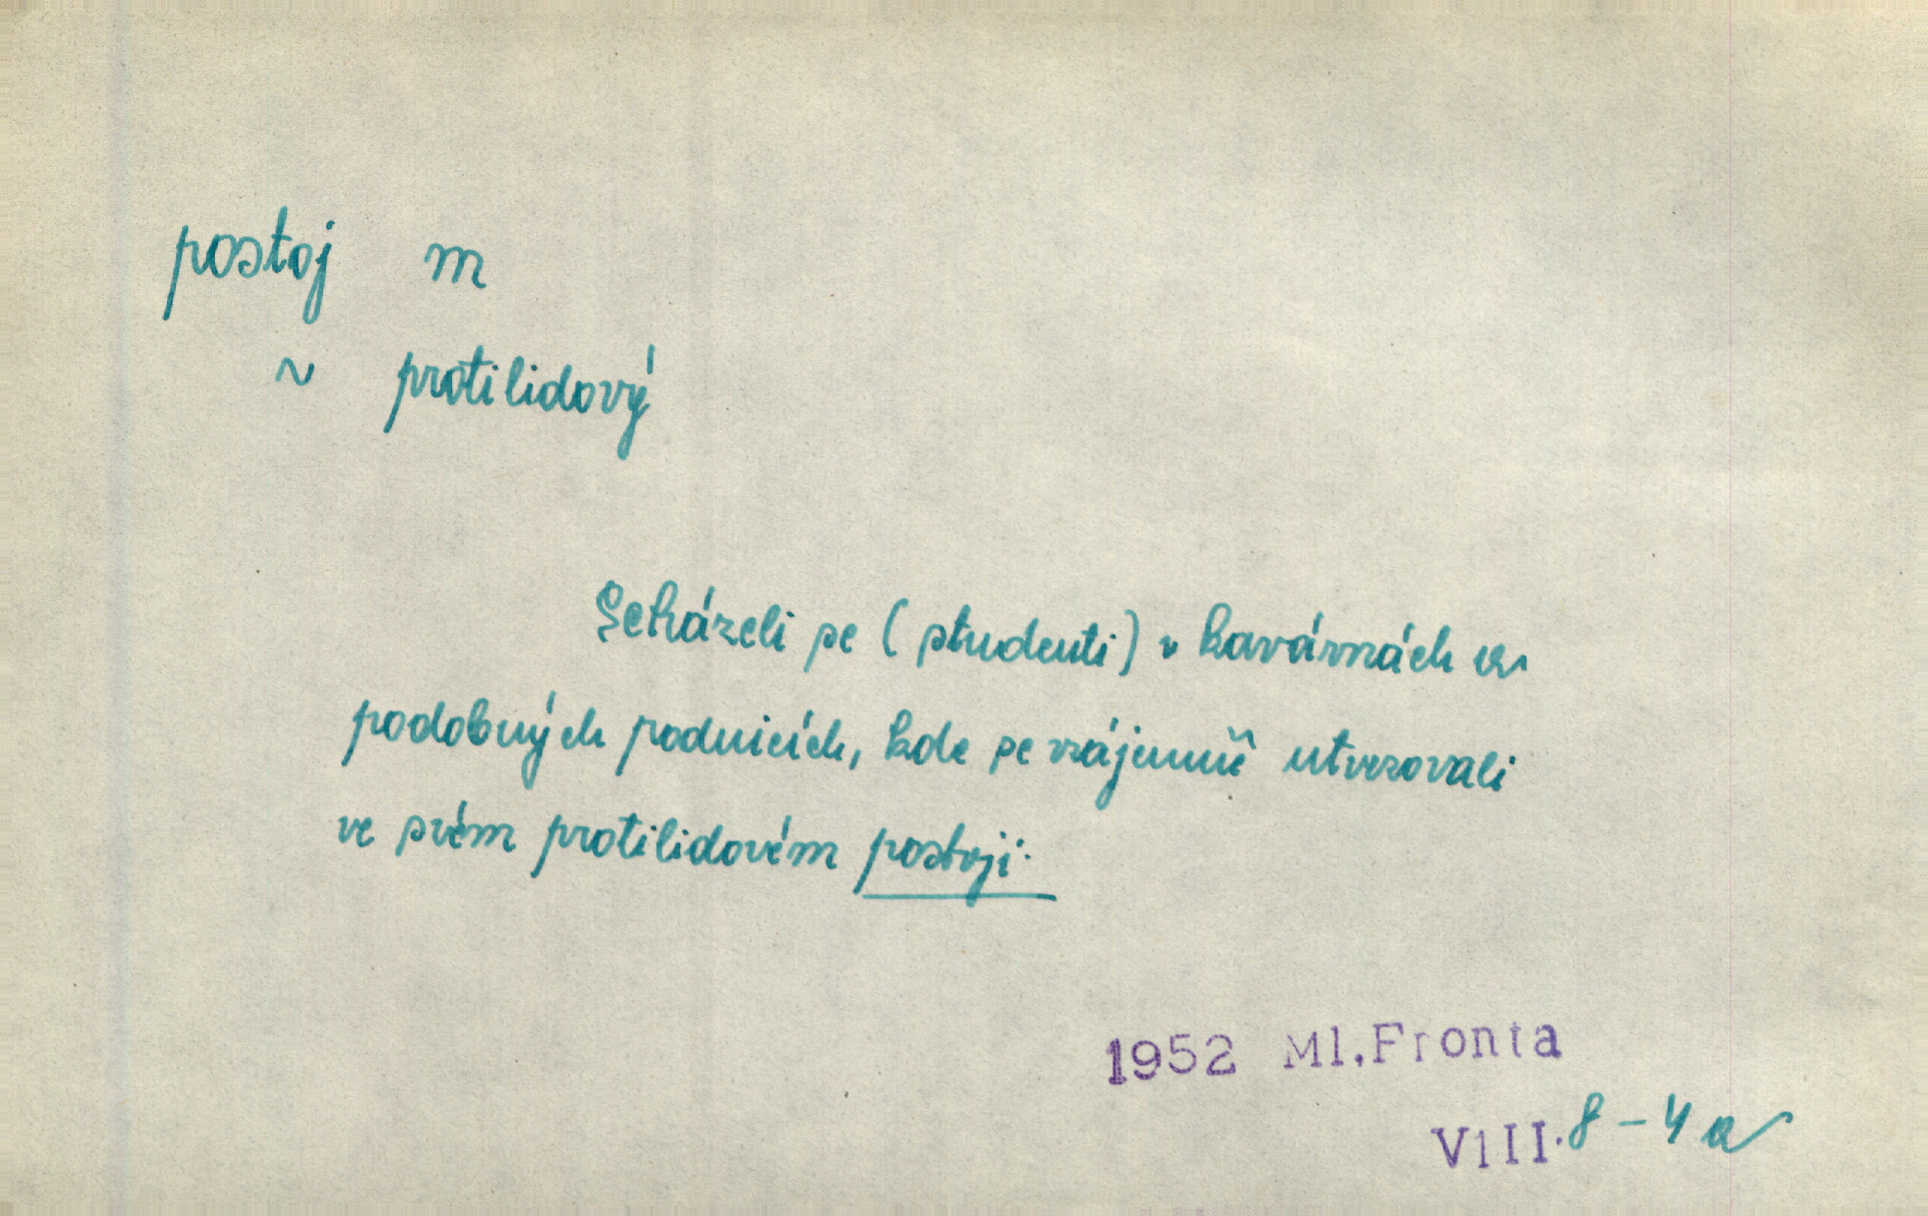 postoj m
~ protilidový
Scházeli se (studenti) v kavárnách a
podobných podnicích, kde se vzájemně utvrzovali
ve svém protilidovém postoji.
1952 Ml.Fronta
VIII. 8 - 4 a